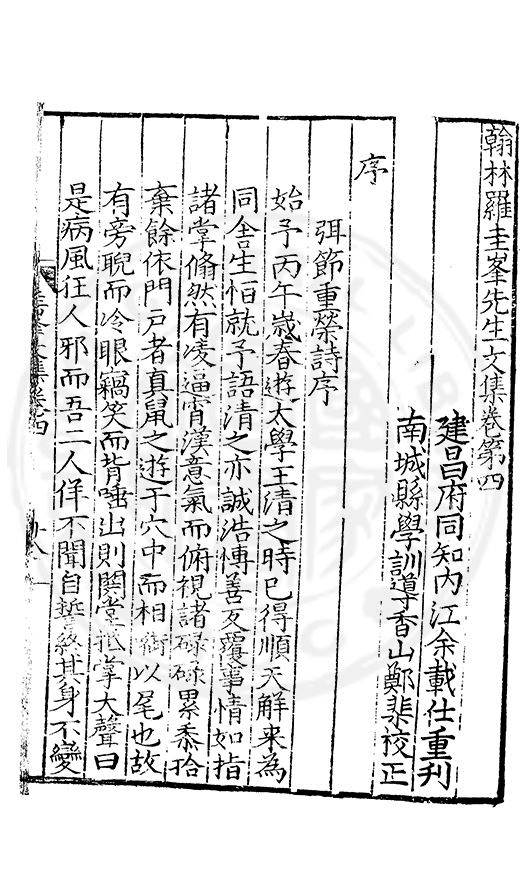 翰林羅圭峯先生文集卷第四
建昌府同知內江余載仕重刋
南城縣學訓導香山鄭棐校正
序
弭節重榮詩序
始予丙午嵗春遊太學王清之時已得順天解来為
同舍生怕就予語清之亦誠浩慱善反覆事情如指
諸掌翛然有凌逼霄漢意氣而俯視諸碌碌累黍拾
棄餘依門戸者真鼠之遊于穴中而相銜以尾也故
有旁睨而冷眼竊笑而背唾出則閧堂抵掌大聲曰
是病風狂人邪而吾二人佯不聞自誓終其身不變